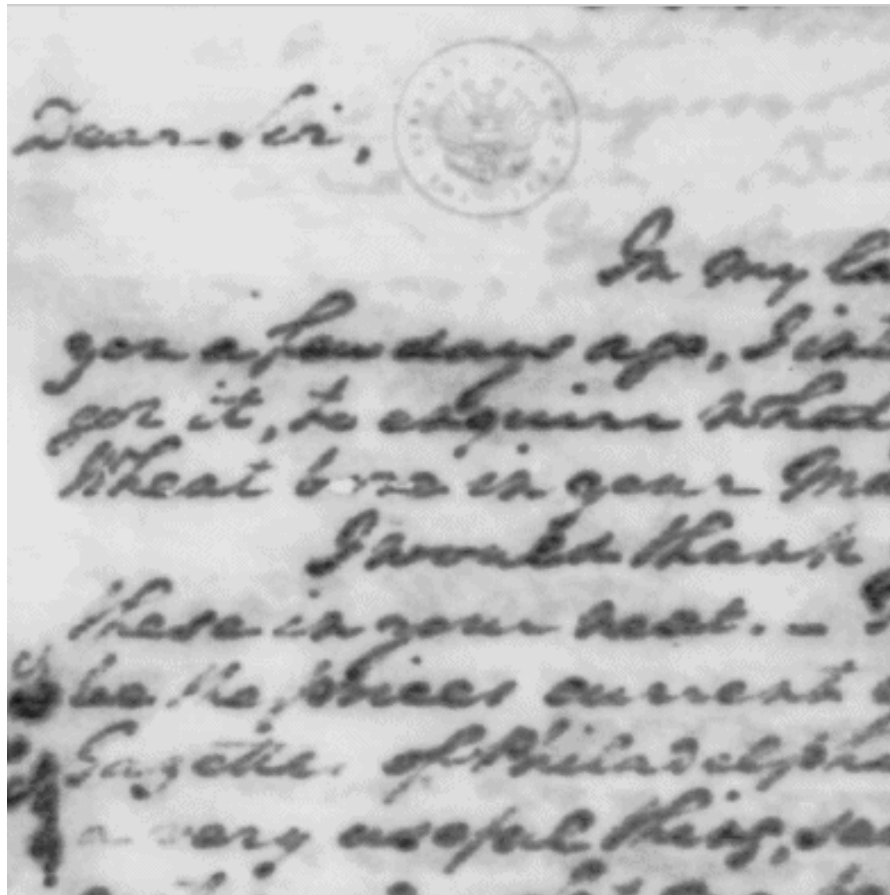 Dear Sir,
In my la
you a few days ago, I in
got it, to enquire what
Wheat bore in your Ma
I would thank
these in your next. —
be the prices current
Gazette of Philadelphia
a very useful thing, se